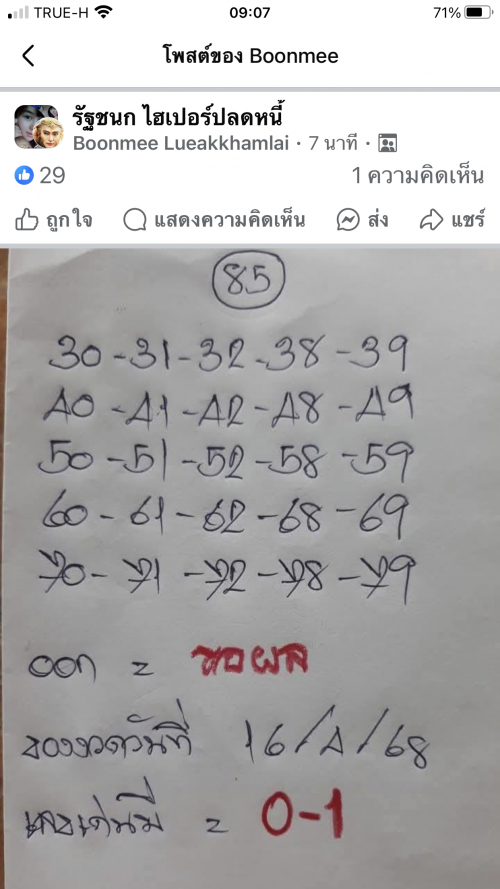 TRUE-H 09:07 71%
โพสต์ของ Boonmee
รัฐชนก ไฮเปอร์ปลดหนี้
Boonmee Lueakkhamlai · 7 นาที ·
29 1 ความคิดเห็น
ถูกใจ แสดงความคิดเห็น ส่ง แชร์
85
30-31-32-38-39
40-41-42-48-49
50-51-52-58-59
60-61-62-68-69
70-71-72-78-79
ออก = รอผล
ของงวดวันที่ 16/4/68
เลขเด่นมี = 0-1